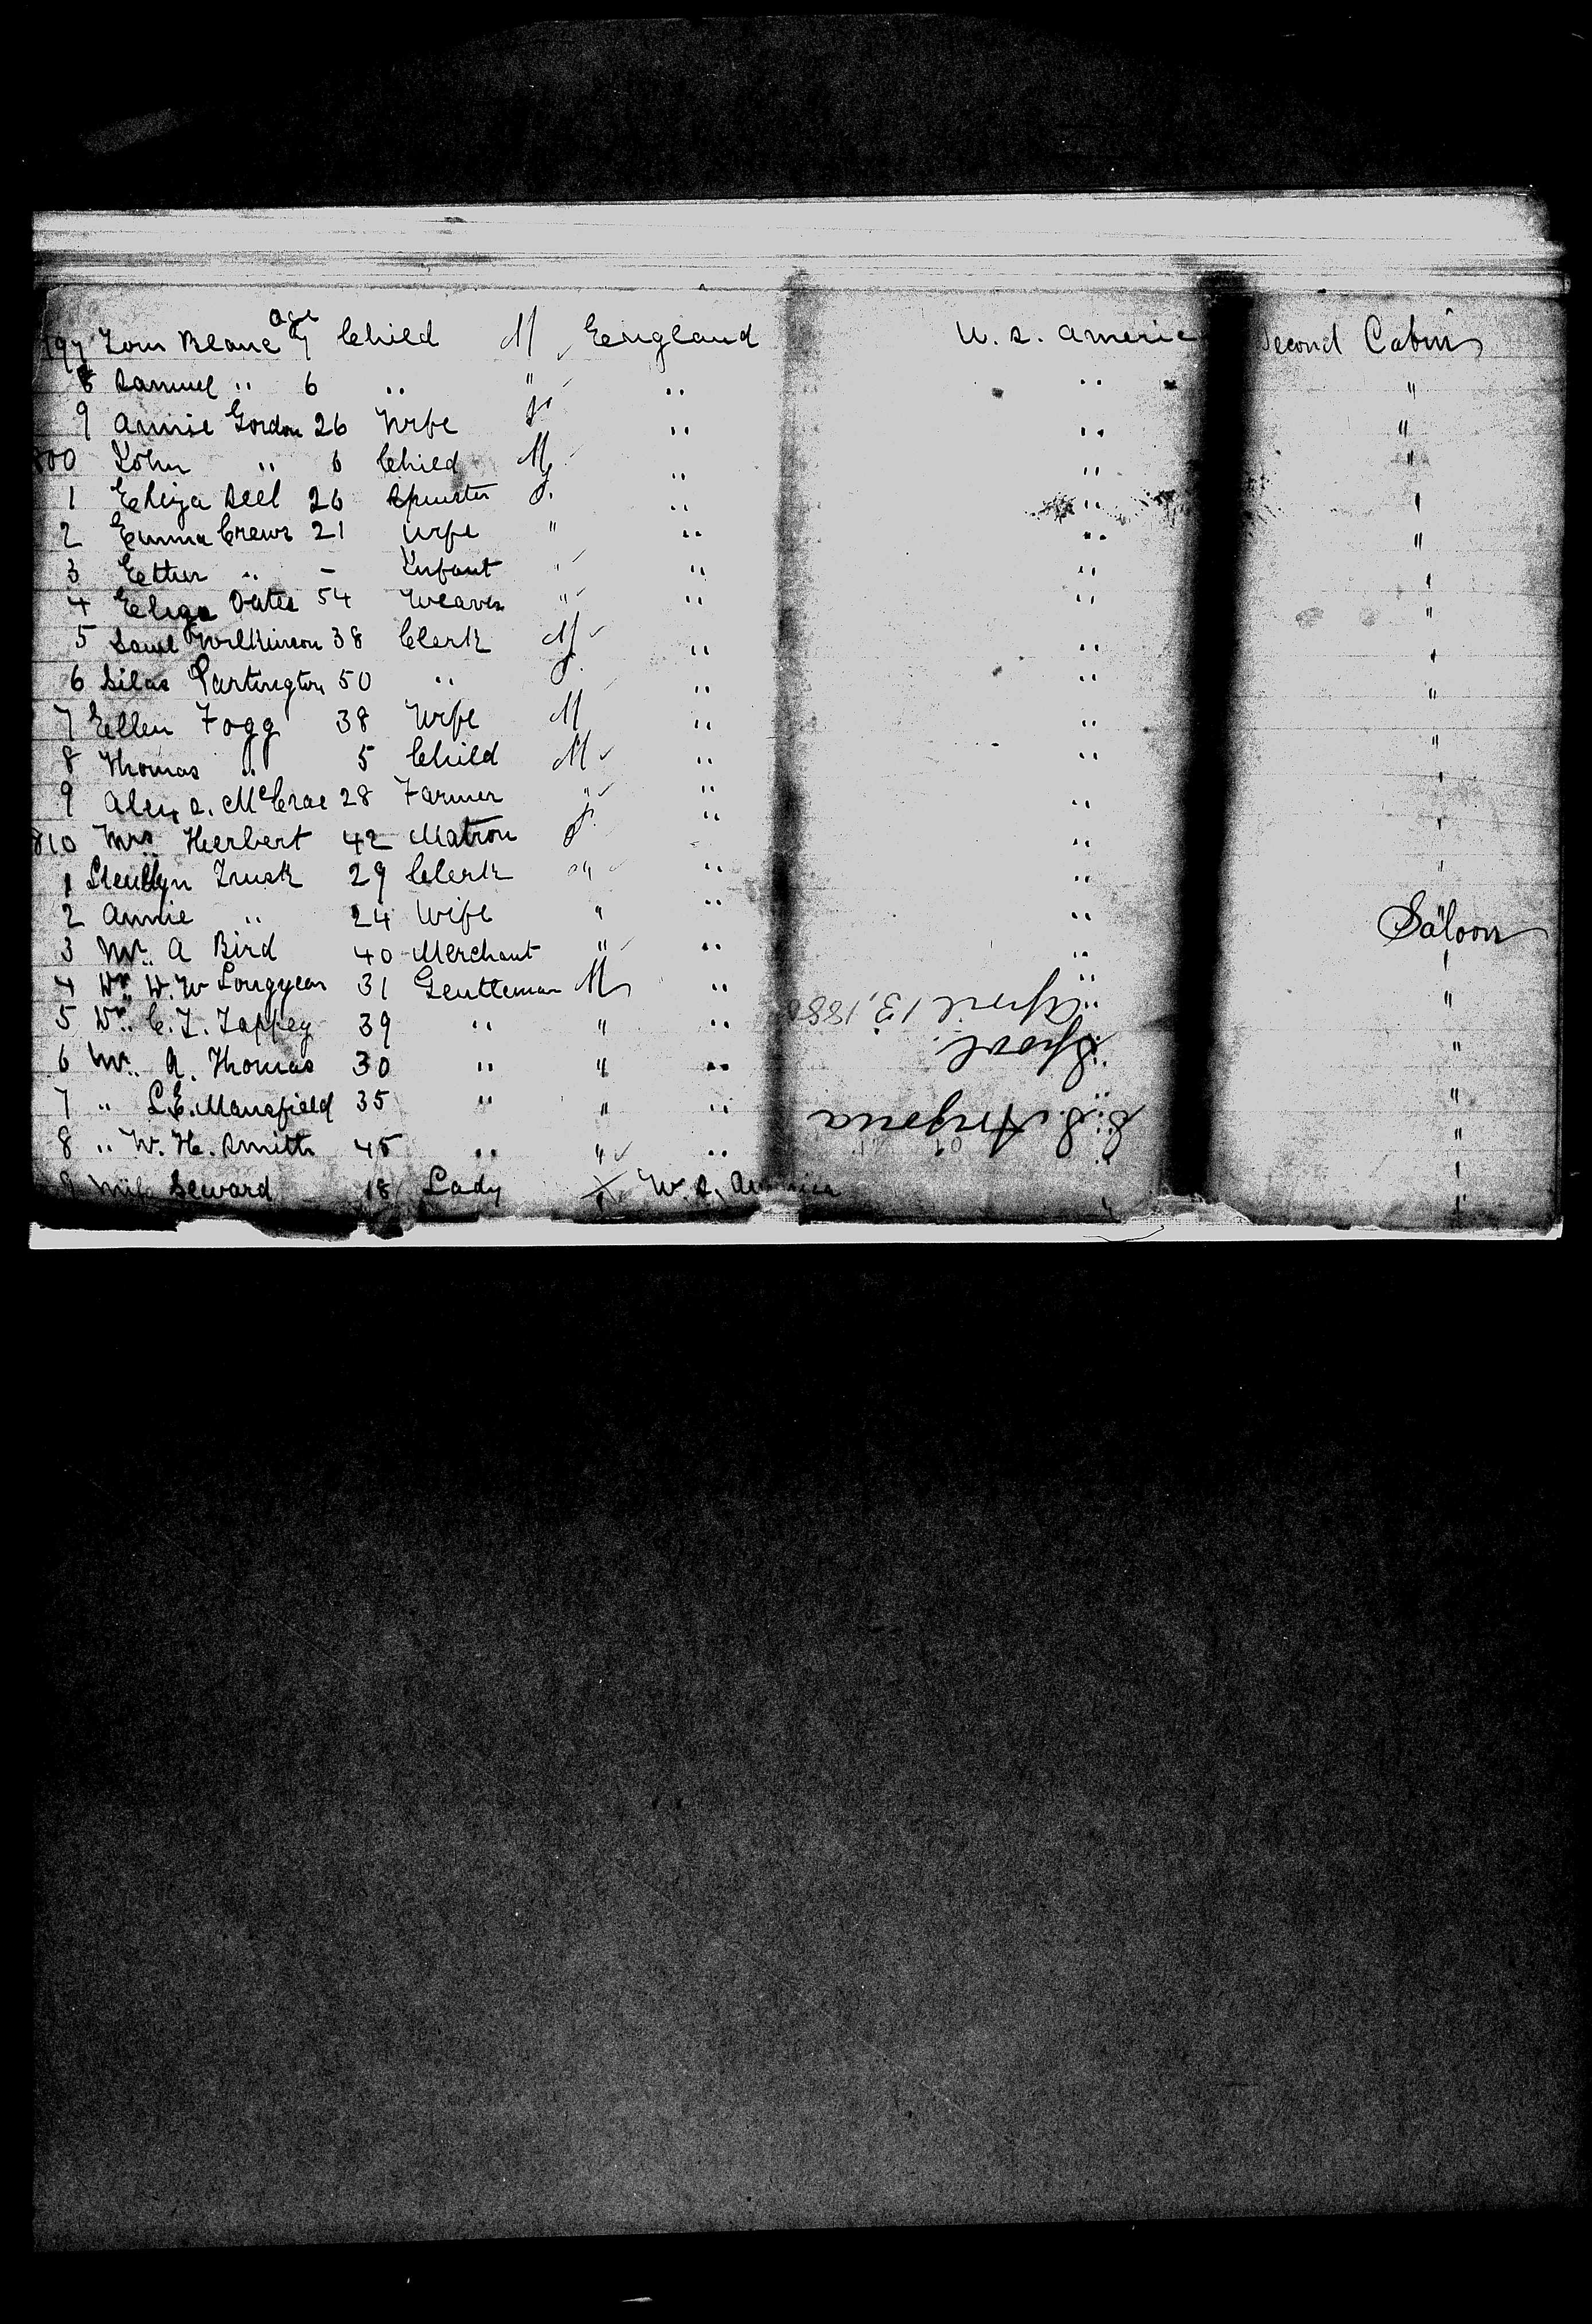 age
797 Tom Beane 7 Child M England U. S. America Second Cabin
8 Samuel " 6 " " " " "
9 Annie Gordon 26 Wife F " " "
800 John " 6 Child M " " "
1 Eliza Seel 26 Spinster F. " " "
2 Emma Crews 21 Wife " " " "
3 Esther " - Infant " " " "
4 Eliza Oates 54 Weaver " " " "
5 Saml Wilkinson 38 Clerk M " " "
6 Silas Partington 50 " F. " " "
7 Ellen Fogg 38 Wife M " " "
8 Thomas " 5 Child M " " "
9 Alex S. McCrae 28 Farmer " " " "
810 Mrs Herbert 42 Matron F. " " "
1 Llewllyn Trusk 29 Clerk " " " "
2 Annie " 24 Wife " " " Saloon
3 Mr. A Bird 40 Merchant " " " "
4 Dr. W. W Longyear 31 Gentleman M " " "
5 Dr. C. T. Tappey 39 " " " " "
6 Mr. A. Thomas 30 " " " " "
7 " L. E. Mansfield 35 " " " " "
8 " W. H. Smith 45 " " " " "
9 Miss Seward 18 Lady U. S. America " "
S. S. Arizona
Lpool.
April 13, 188